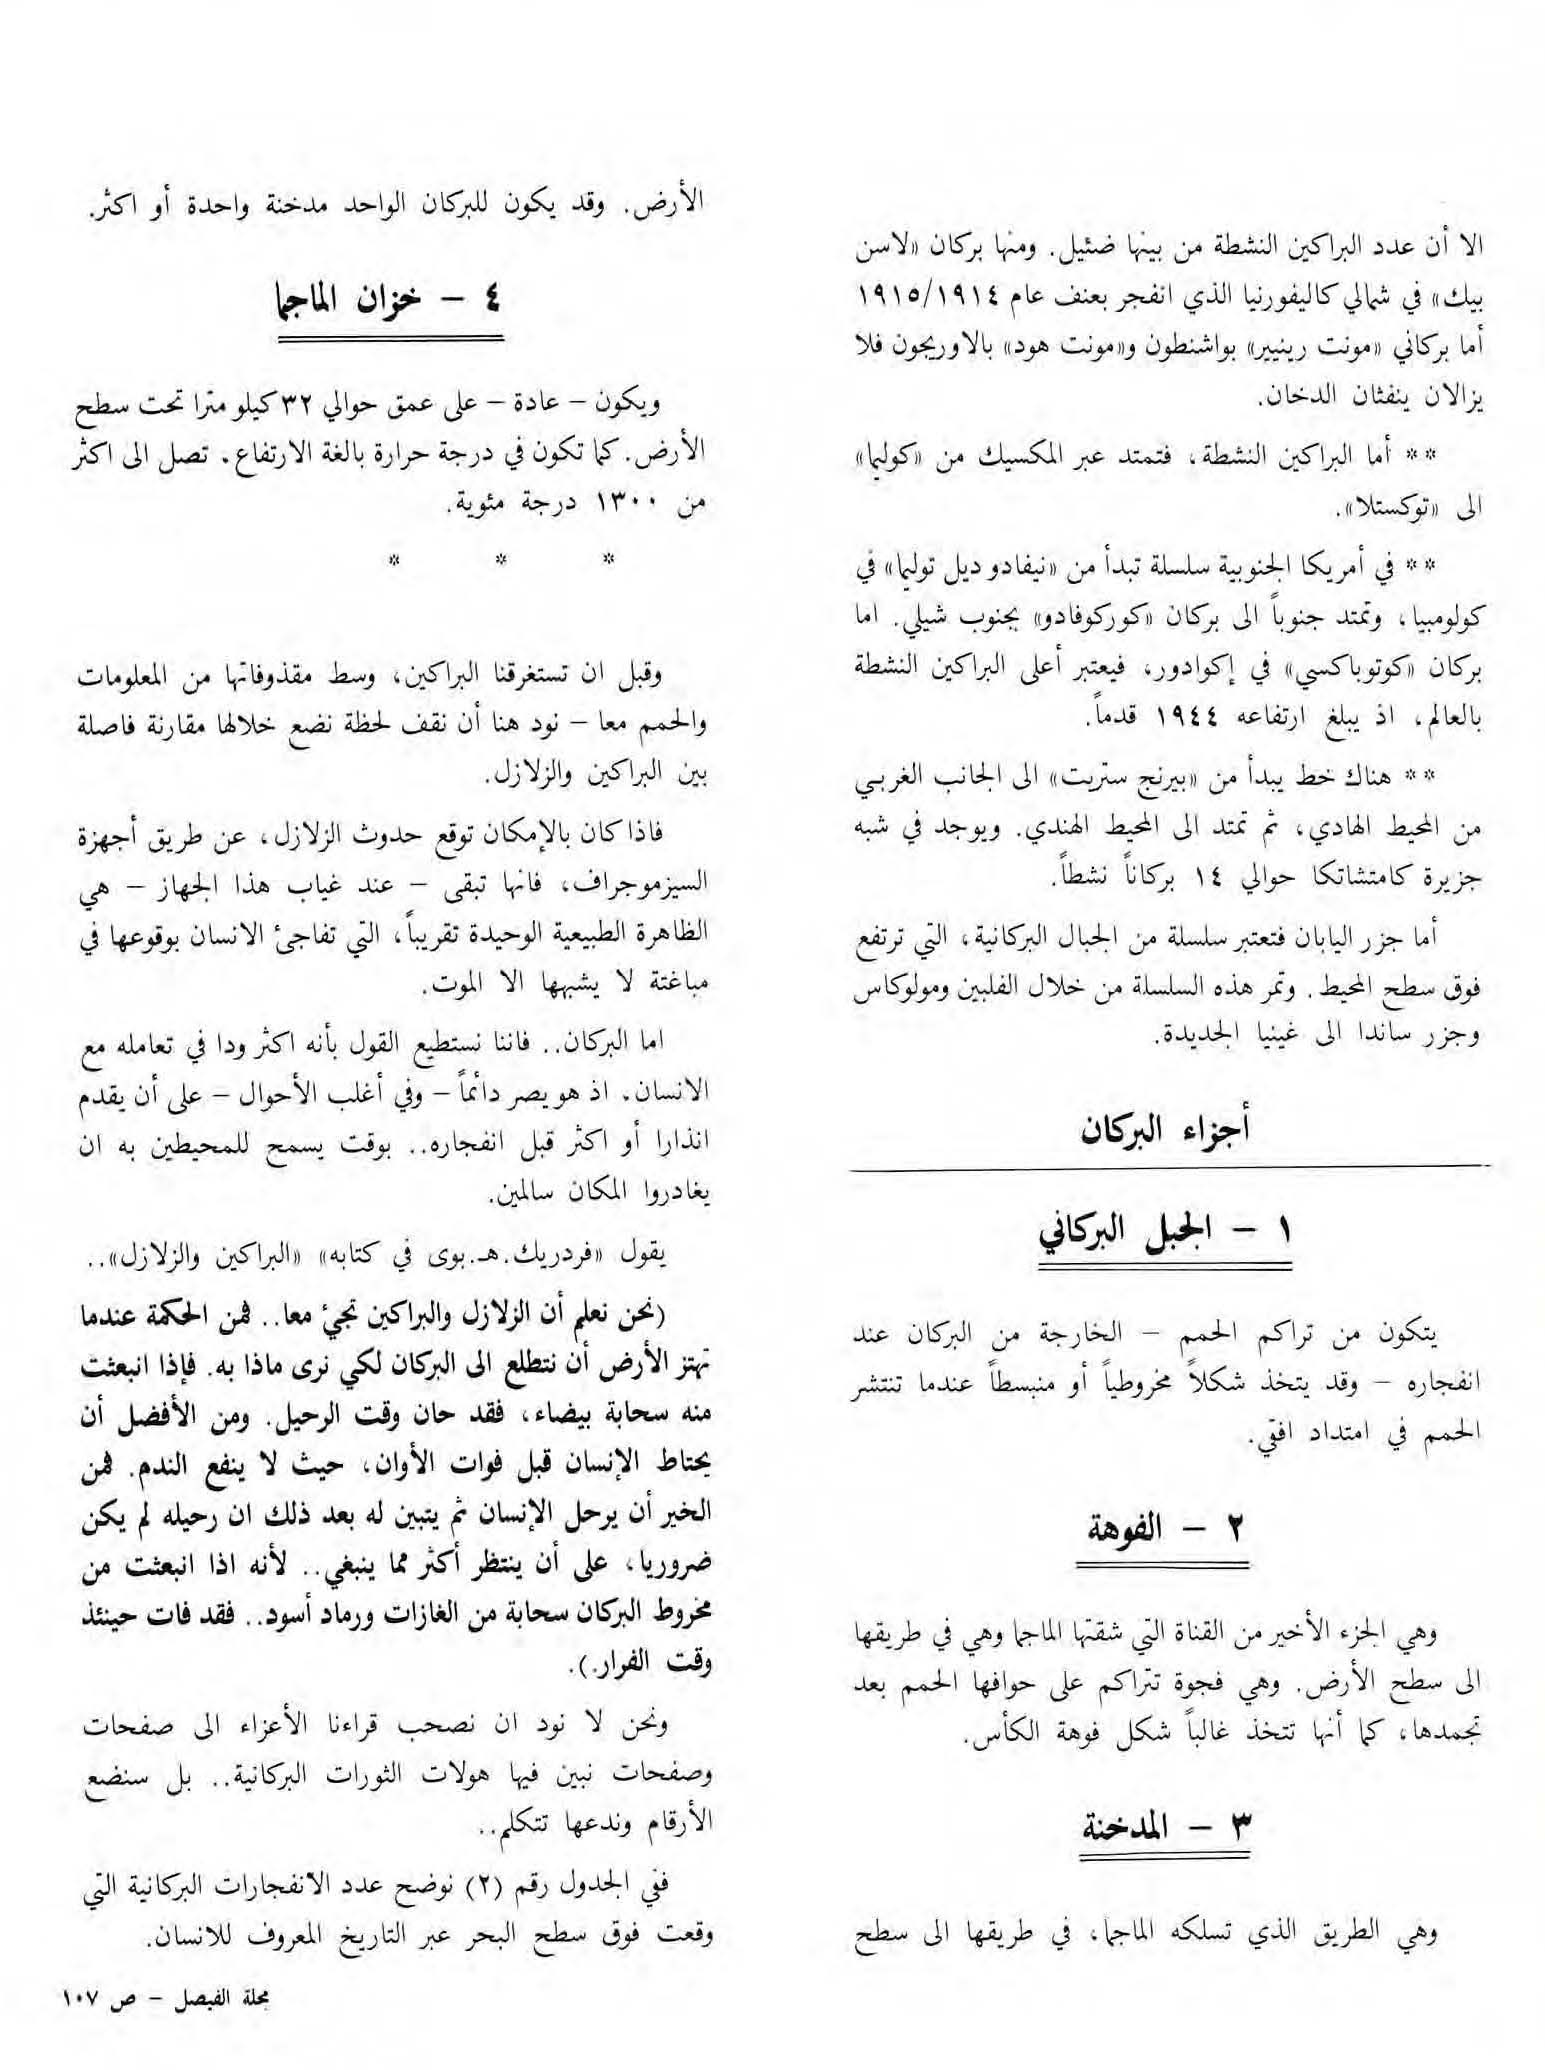 الا أن عدد البراكين النشطة من بينها ضئيل. ومنها بركان «لاسن
بيك» في شمالي كاليفورنيا الذي انفجر بعنف عام ١٩١٥/١٩١٤
أما بركاني «مونت رينيير» بواشنطون و«مونت هود» بالاوريجون فلا
يزالان ينفثان الدخان.
** أما البراكين النشطة، فتمتد عبر المكسيك من «كوليما»
الى «توكستلا».
** في أمريكا الجنوبية سلسلة تبدأ من «نيفادو ديل توليما» في
كولومبيا، وتمتد جنوباً الى بركان «كوركوفادو» بجنوب شيلي. اما
بركان «كوتوباكسي» في إكوادور، فيعتبر أعلى البراكين النشطة
بالعالم، اذ يبلغ ارتفاعه ١٩٤٤ قدماً.
** هناك خط يبدأ من «بيرنج ستريت» الى الجانب الغربي
من المحيط الهادي، ثم تمتد الى المحيط الهندي. ويوجد في شبه
جزيرة كامتشاتكا حوالي ١٤ بركاناً نشطاً.
أما جزر اليابان فتعتبر سلسلة من الجبال البركانية، التي ترتفع
فوق سطح المحيط. وتمر هذه السلسلة من خلال الفلبين ومولوكاس
وجزر ساندا الى غينيا الجديدة.
أجزاء البركان
١ – الجبل البركاني
يتكون من تراكم الحمم – الخارجة من البركان عند
انفجاره – وقد يتخذ شكلاً مخروطياً أو منبسطاً عندما تنتشر
الحمم في امتداد افقي.
٢ – الفوهة
وهي الجزء الأخير من القناة التي شقتها الماجما وهي في طريقها
الى سطح الأرض. وهي فجوة تتراكم على حوافها الحمم بعد
تجمدها، كما أنها تتخذ غالباً شكل فوهة الكأس.
٣ – المدخنة
وهي الطريق الذي تسلكه الماجما، في طريقها الى سطح
الأرض. وقد يكون للبركان الواحد مدخنة واحدة أو اكثر.
٤ – خزان الماجما
ويكون – عادة – على عمق حوالي ٣٢ كيلو مترا تحت سطح
الأرض. كما تكون في درجة حرارة بالغة الارتفاع، تصل الى اكثر
من ١٣٠٠ درجة مئوية.
* * *
وقبل ان تستغرقنا البراكين، وسط مقذوفاتها من المعلومات
والحمم معا – نود هنا أن نقف لحظة نضع خلالها مقارنة فاصلة
بين البراكين والزلازل.
فاذا كان بالإمكان توقع حدوث الزلازل، عن طريق أجهزة
السيزموجراف، فانها تبقى – عند غياب هذا الجهاز – هي
الظاهرة الطبيعية الوحيدة تقريباً، التي تفاجئ الانسان بوقوعها في
مباغتة لا يشبهها الا الموت.
اما البركان.. فاننا نستطيع القول بأنه اكثر ودا في تعامله مع
الانسان، اذ هو يصر دائماً – وفي أغلب الأحوال – على أن يقدم
انذارا أو اكثر قبل انفجاره.. بوقت يسمح للمحيطين به ان
يغادروا المكان سالمين.
يقول «فردريك.هـ.بوى في كتابه» «البراكين والزلازل»..
(نحن نعلم أن الزلازل والبراكين تجيئ معا.. فمن الحكمة عندما
تهتز الأرض أن نتطلع الى البركان لكي نرى ماذا به. فإذا انبعثت
منه سحابة بيضاء، فقد حان وقت الرحيل. ومن الأفضل أن
يحتاط الإنسان قبل فوات الأوان، حيث لا ينفع الندم. فمن
الخير أن يرحل الإنسان ثم يتبين له بعد ذلك ان رحيله لم يكن
ضروريا، على أن ينتظر أكثر مما ينبغي.. لأنه اذا انبعثت من
مخروط البركان سحابة من الغازات ورماد أسود.. فقد فات حينئذ
وقت الفرار.).
ونحن لا نود ان نصحب قراءنا الأعزاء الى صفحات
وصفحات نبين فيها هولات الثورات البركانية.. بل سنضع
الأرقام وندعها تتكلم..
ففي الجدول رقم (٢) نوضح عدد الانفجارات البركانية التي
وقعت فوق سطح البحر عبر التاريخ المعروف للانسان.
مجلة الفيصل – ص ١٠٧